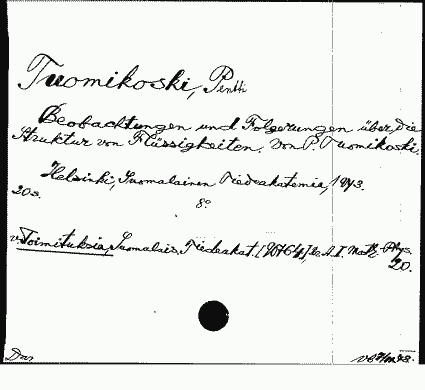 Tuomikoski, Pentti
Beobachtungen und Folgerungen über die
Struktur von Flüssigkeiten. Von P. Tuomikoski.
Helsinki, Suomalainen Tiedeakatemia, 1943.
20 s. 8°
v. Toimituksia, Suomalais. Tiedeakat. Math.-Phys.
20.